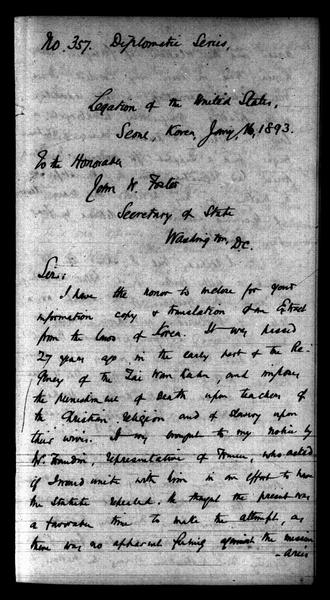 No. 357. Diplomatic Series.
Legation of the United States,
Seoul, Korea, Jany 16, 1893.
To the Honorable
John W. Foster
Secretary of State
Washington, D.C.
Sir:
I have the honor to inclose for your
information copy & translation of an Extract
from the laws of Korea. It was passed
27 years ago in the early part of the Re-
gency of the Tai Wan Kuhn, and imposes
the punishment of Death upon teachers of
the Christian religion and of slavery upon
their wives. It was brought to my notice by
Mr. Frandin, representative of France, who asked
if I would unite with him in an effort to have
the statute repealed. He thought the present was
a favorable time to make the attempt, as
there was no apparent feeling against the mission-
-aries